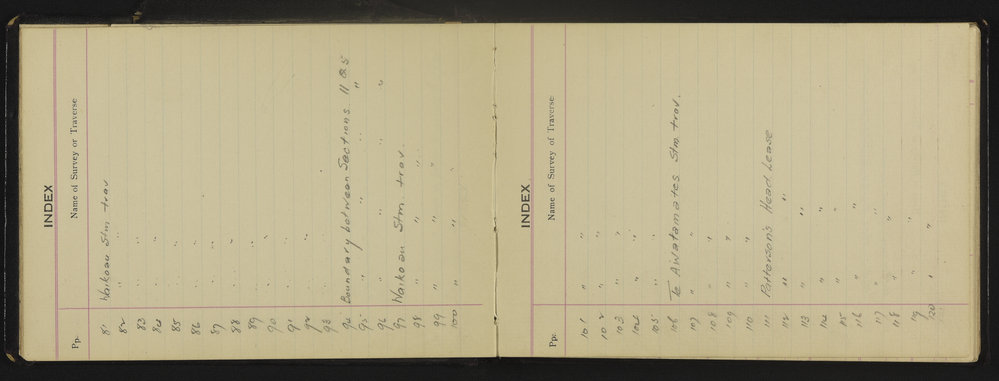 INDEX
Pp. Name of Survey or Traverse
81 Waikoau Stm trav
82 " "
83 " "
84 " "
85 " "
86 " "
87 " "
88 " "
89 " "
90 " "
91 " "
92 " "
93 " "
94 Boundary between Sections 11 & 5
95 " " " "
96 " " " "
97 Waikoau Stm. trav.
98 " " "
99 " " "
100 " " "
INDEX
Pp. Name of Survey of Traverse
101 " "
102 " "
103 " "
104 " "
105 " "
106 Te Awatamatea Stm trav.
107 " "
108 " "
109 " "
110 " "
111 Patterson's Head Lease
112 " "
113 " "
114 " "
115 " "
116 " "
117 " "
118 " "
119 " "
120 " "